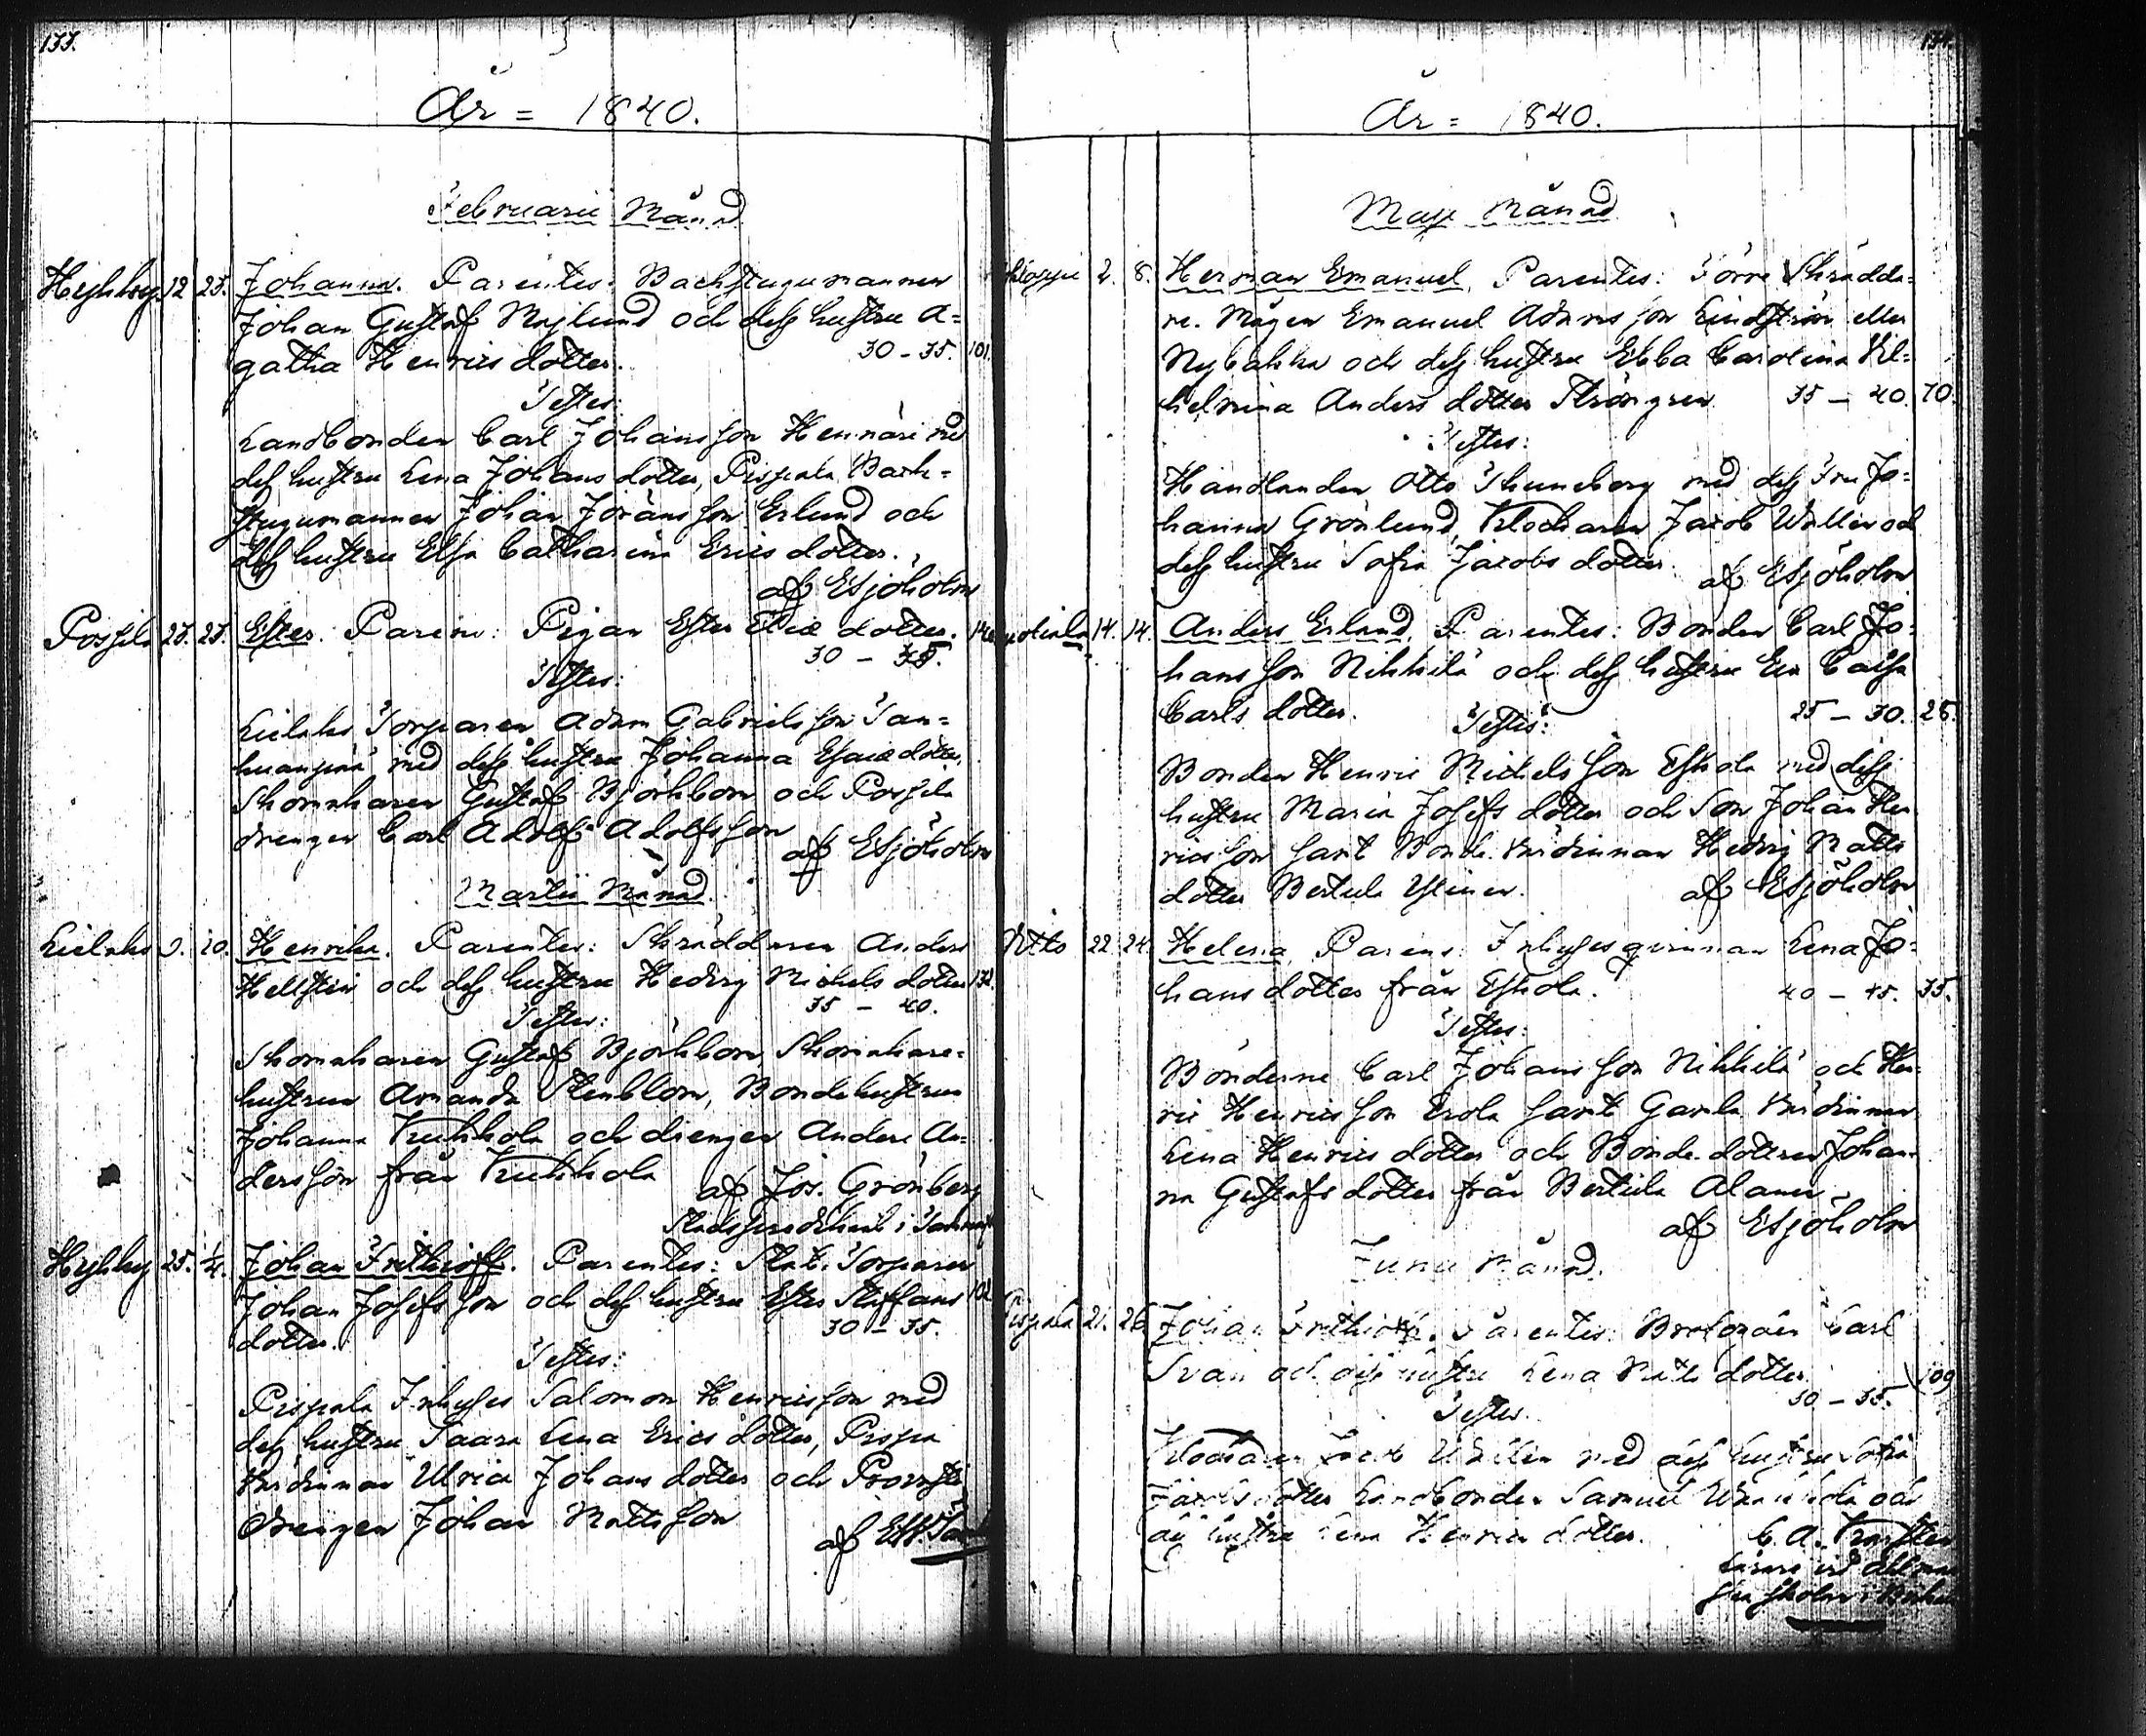 133.
År = 1840.
Februarii Månad
Hyhky 12 23. Johanna. Parentes: Backstugumannen
Johan Gustaf Majlund och dess hustru A=
gatha Henrics dotter. 30 - 35. 101.
Testes:
Landbonden Carl Johansson Hennäri med
dess hustru Lena Johans dotter, Pispala Back=
stugumannen Johan Jöransson Erlund och
dess hustru Elsa Catharina Erics dotter.
af ESjöholm
Possila 23. 23. Ester. Parens: Pigan Ester Eliæ dotter.
30 - 35.
Testes:
Lielaks Torparen Adam Gabrielsson Tan=
huanpää med dess hustru Johanna Esaiæ dotter,
Skomakaren Gustaf Björkbom och Possila
drengen Carl Adolf Adolfsson
af ESjöholm
Martii Månad.
Lielaks 9. 10. Henrika. Parentes: Skräddaren Anders
Hellsten och dess hustru Hedvig Michels dotter 132.
35 - 40.
Testes:
Skomakaren Gustaf Björkbom, Skomakare=
hustrun Amanda Stenblom, Bondehustrun
Johanna Kuhkola och drengen Anders An=
dersson från Kuhkola
af Jos. Grönberg
Stadspredikant i
Hyhky 25. 1/4. Johan Frithioff. Parentes: Stat. Torparen
Johan Josefsson och dess hustru Ester Staffans 102
dotter. 30 - 35.
Testes:
Pispala Inhyses Salomon Henricsson med
dess hustru Saara Lena Erics dotter, Pispa
Värdinnan Ulrica Johans dotter och Provsti
drengen Johan Mattsson
af
134.
År = 1840.
Maji Månad
2. 8. Herman Emanuel. Parentes: Förre Skrädda=
re. Mågen Emanuel Adamsson Lindström eller
Nybacka och dess hustru Ebba Carolina Vil=
helmina Anders dotter Strömgren. 35 - 40. 70.
Testes:
Handlanden Otto Thuneberg med dess Fru Jo=
hanna Grönlund, Klockaren Jacob Wallin och
dess hustru Sofia Jacobs dotter.
af ESjöholm
14. 14. Anders Erland. Parentes: Bonden Carl Jo=
hansson Nikkilä och dess hustru Eva Caisa
Carls dotter. 25 - 30. 28.
Testes:
Bonden Henric Michelsson Eskola med dess
hustru Maria Josefs dotter och Son Johan Hen
ricsson samt Bonde Värdinnan Hedvig Matts
dotter Bertula Yleinen.
af ESjöholm
Otto 22 24. Helena. Parens: Inhyses qvinnan Lena Jo=
hans dotter från Eskola. 40 - 45. 35.
Testes:
Bönderne Carl Johansson Nikkilä och Hen=
ric Henricsson Erola samt Gamla Värdinnan
Lena Henrics dotter och Bonde dottren Johan=
na Gustafs dotter från Bertula Alanen
af ESjöholm
Junii Månad.
Pispala 21. 26. Johan Frithioff. Parentes: Carl
Svan och dess hustru Lena Matts dotter. 109
30 - 35.
Testes.
Klockaren Jacob Wallin med dess hustru Sofia
Jacobs dotter Landbonden Samuel och
dess hustru Lena Henrics dotter.
C. A.
lärare vid